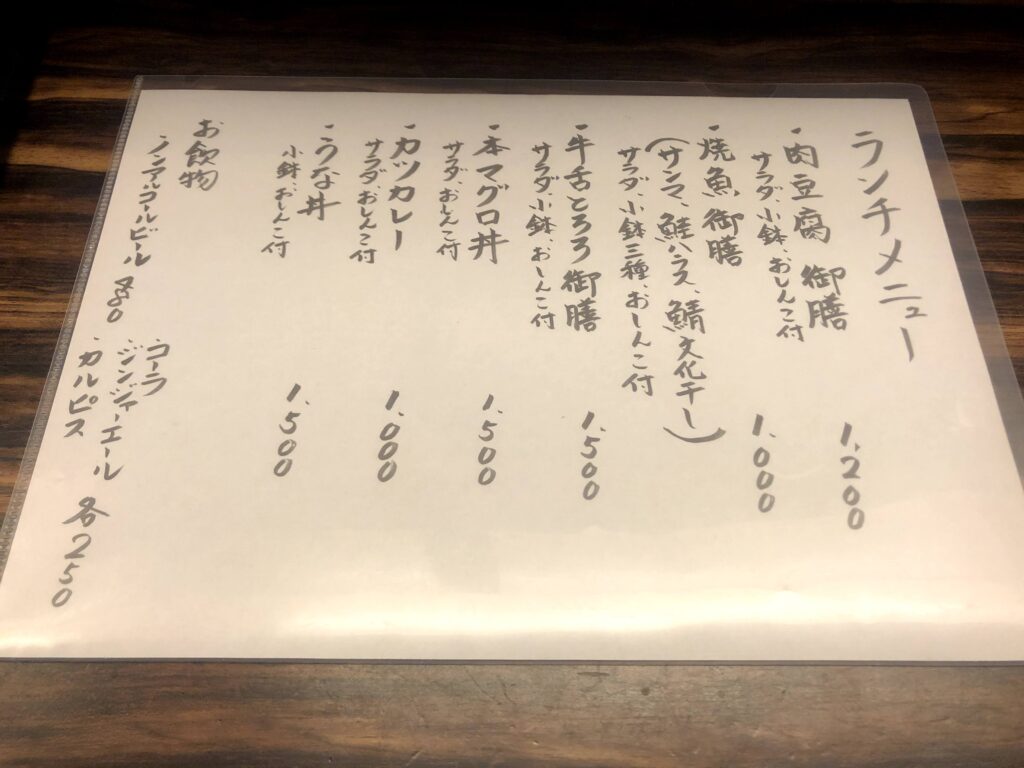 ランチメニュー
・肉豆腐 御膳 1,200
サラダ、小鉢、おしんこ付
・焼魚御膳 1,000
(サンマ、鮭ハラス、鯖文化干し)
サラダ、小鉢三種、おしんこ付
・牛舌とろろ御膳 1,500
サラダ、小鉢、おしんこ付
・本マグロ丼 1,500
サラダ、おしんこ付
・カツカレー 1,000
サラダ、おしんこ付
・うな丼 1,500
小鉢、おしんこ付
お飲物
・ノンアルコールビール 480
・コーラ
・ジンジャーエール
・カルピス 各250